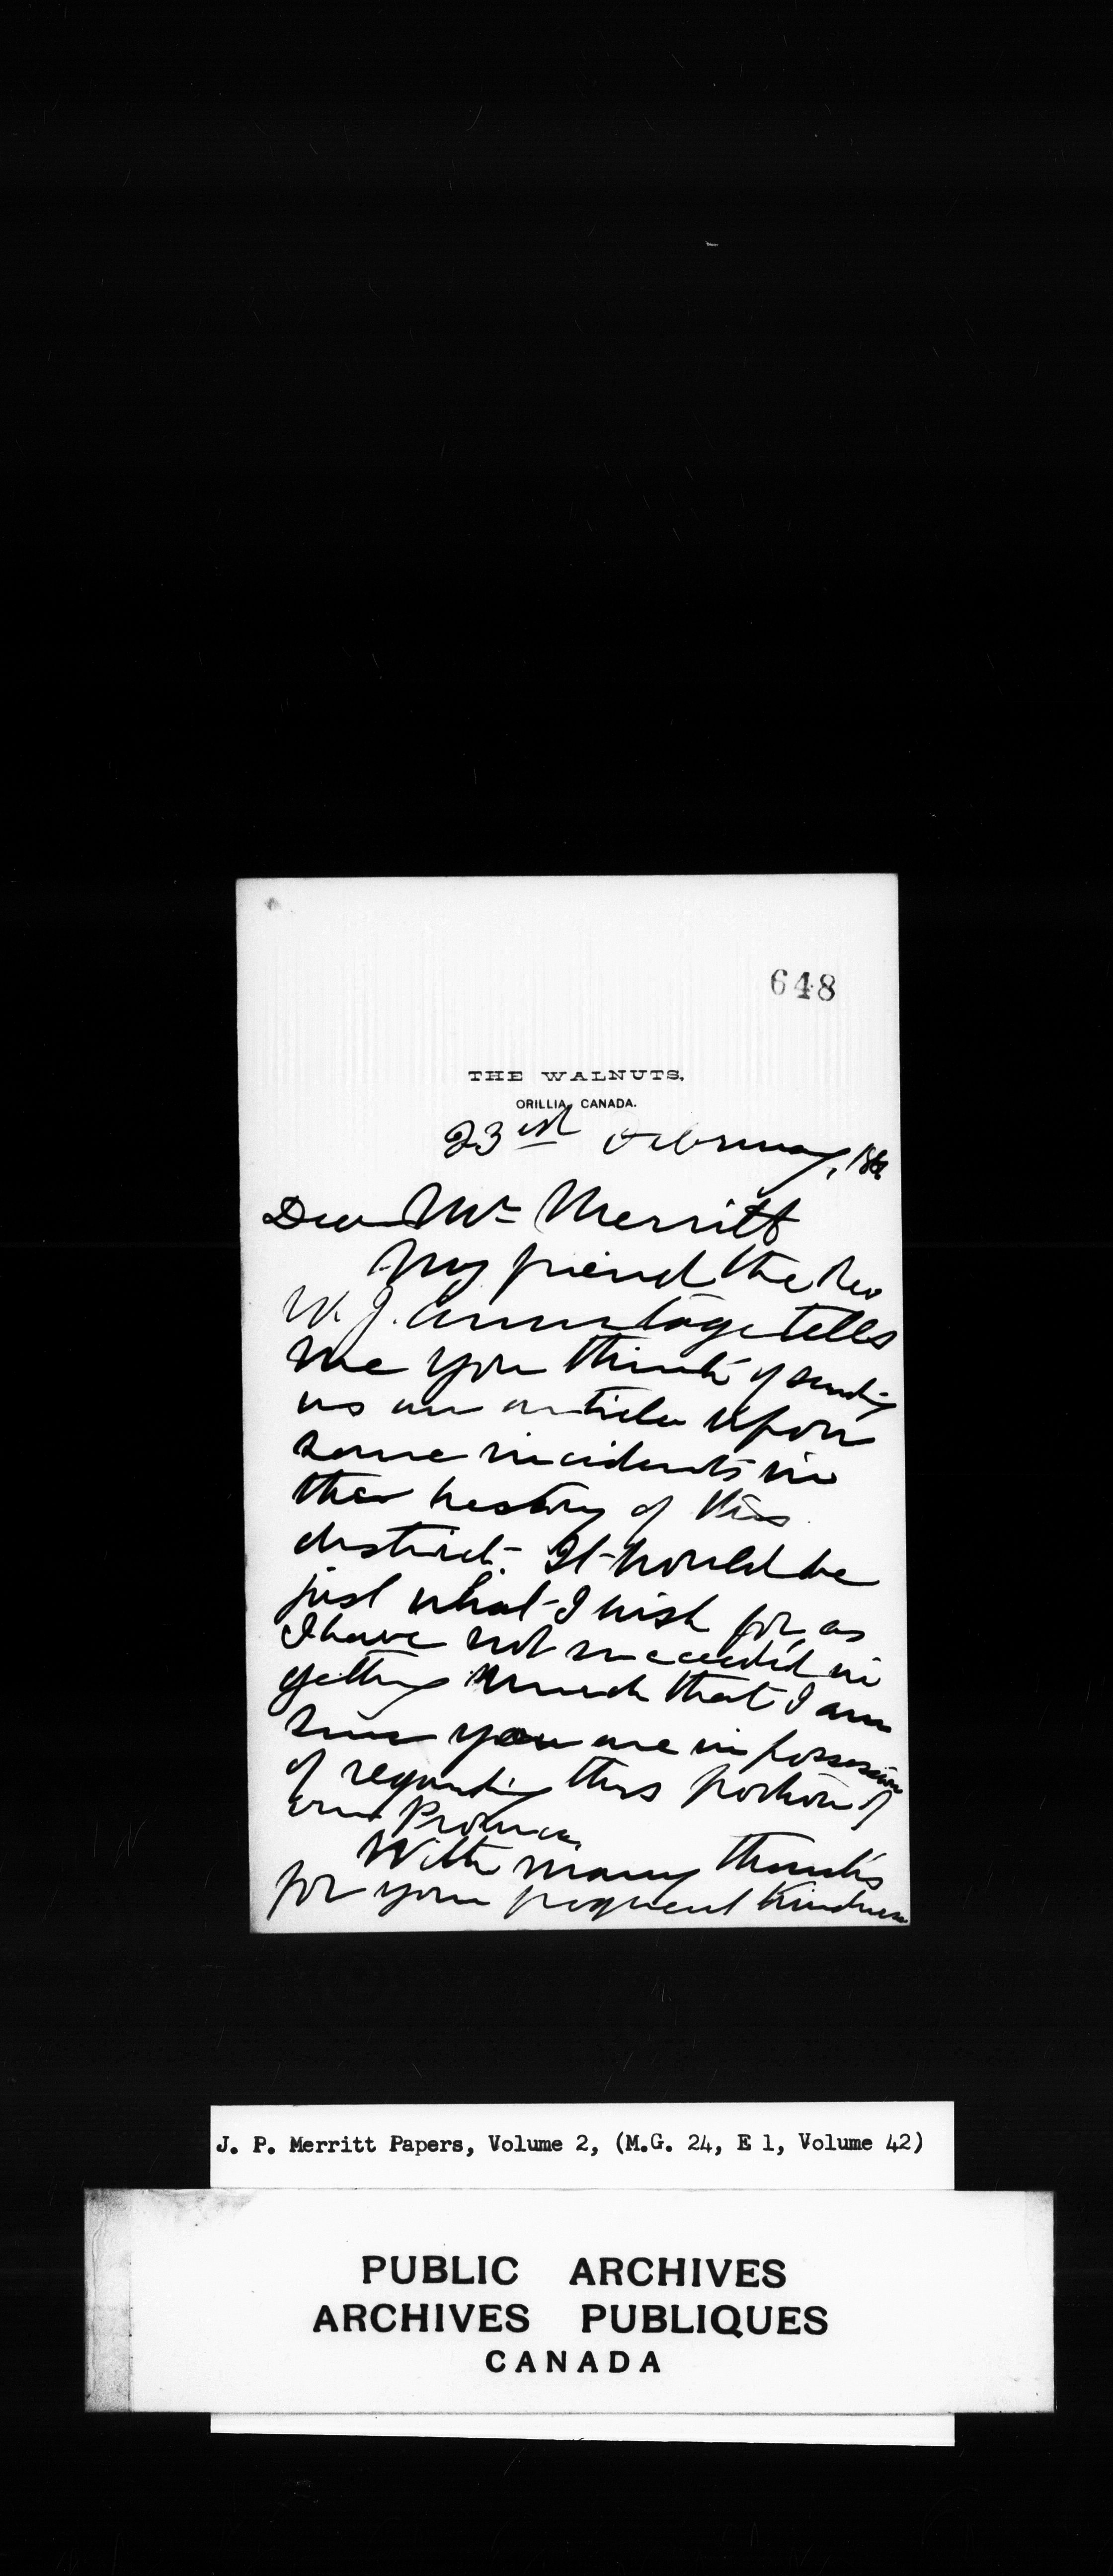 648
THE WALNUTS,
ORILLIA, CANADA.
23rd February, 18
Dear Mr Merritt
My friend the Rev
W. J. Armitage tells
me you think of sending
us an article upon
some incidents in
the history of this
district. It would be
just what I wish for, as
I have not succeeded in
getting much that I am
sure you are in possession
of regarding this portion of
our Province
With many thanks
for your frequent kindness
J. P. Merritt Papers, Volume 2, (M.G. 24, E 1, Volume 42)
PUBLIC ARCHIVES
ARCHIVES PUBLIQUES
CANADA